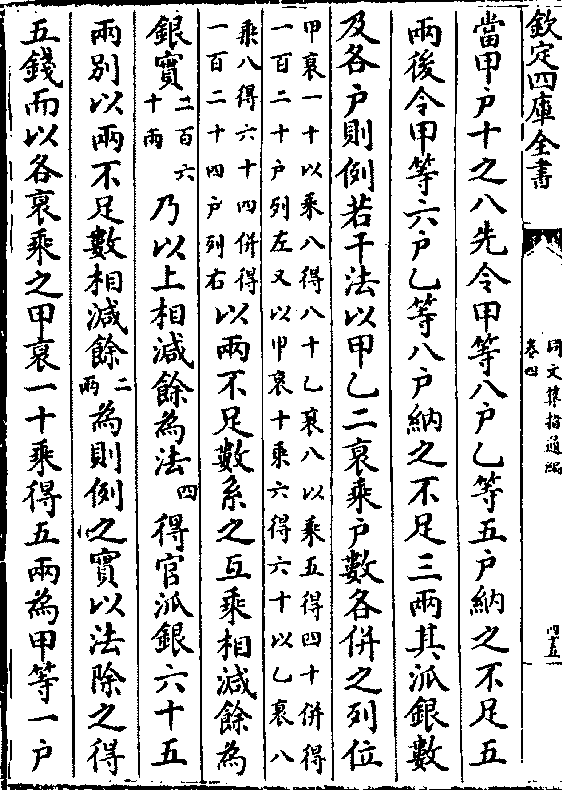 欽定四庫全書
同文算指通編
卷四
四五
當甲戶十之八先令甲等八戶乙等五戶納之不足五
兩後令甲等六戶乙等八戶納之不足三兩其派銀數
及各戶則例若干法以甲乙二衰乘戶數各併之列位
甲衰一十以乘八得八十乙衰八以乘五得四十併得
一百二十戶列左又以甲衰十乘六得六十以乙衰八
乘八得六十四併得
一百二十四戶列右
以兩不足數系之互乘相減餘為
銀實
二百六
十兩
乃以上相減餘為法
四
得官派銀六十五
兩別以兩不足數相減餘
二
兩
為則例之實以法除之得
五錢而以各衰乘之甲衰一十乘得五兩為甲等一戶